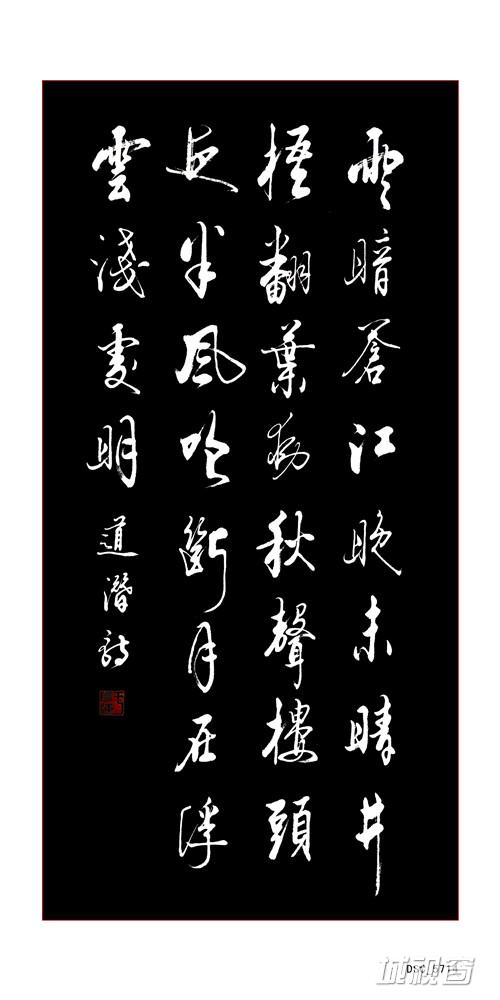 雨暗蒼江晚未晴井
梧翻葉動秋聲樓頭
夜半風吹斷月在浮
雲淺處明 道潛詩
城视窗